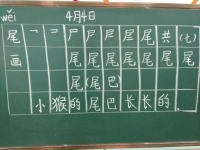 wěi 4月4日
尾 ㇕ コ 尸 尸 尸 尾 尾 共(七)
画 尾 尾 尾 尾 尾 尾
尾(尾巴)
小猴的尾巴长长的。